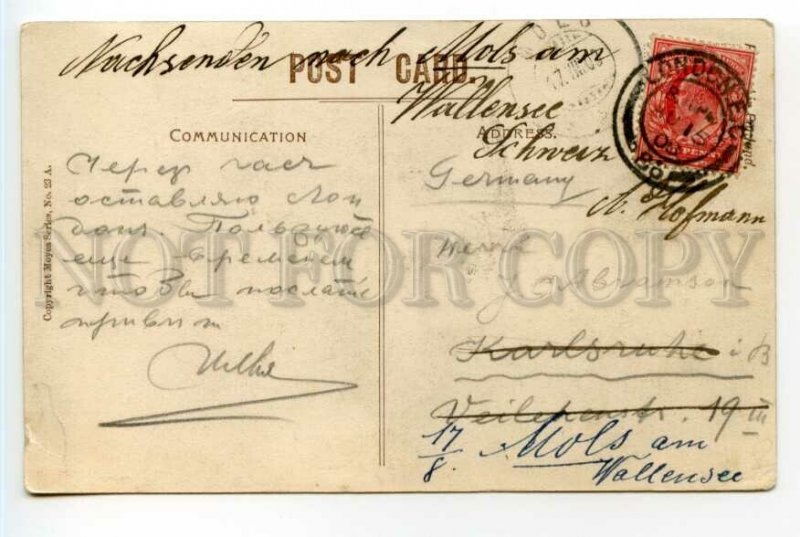 Nachsenden nach Mols am
POST CARD.
Wallensee
Schweiz
COMMUNICATION
ADDRESS.
Germany
A. Hofmann
Через час
оставляю Лон
дон. Пользуюсь
еще временем
чтобы послать
привет
Herrn
J. Abramson
Karlsruhe i B
19 III
17/8. Mols am
Wallensee
Copyright Moyes Series, No. 23 A.
LONDON E.C
NOT FOR COPY